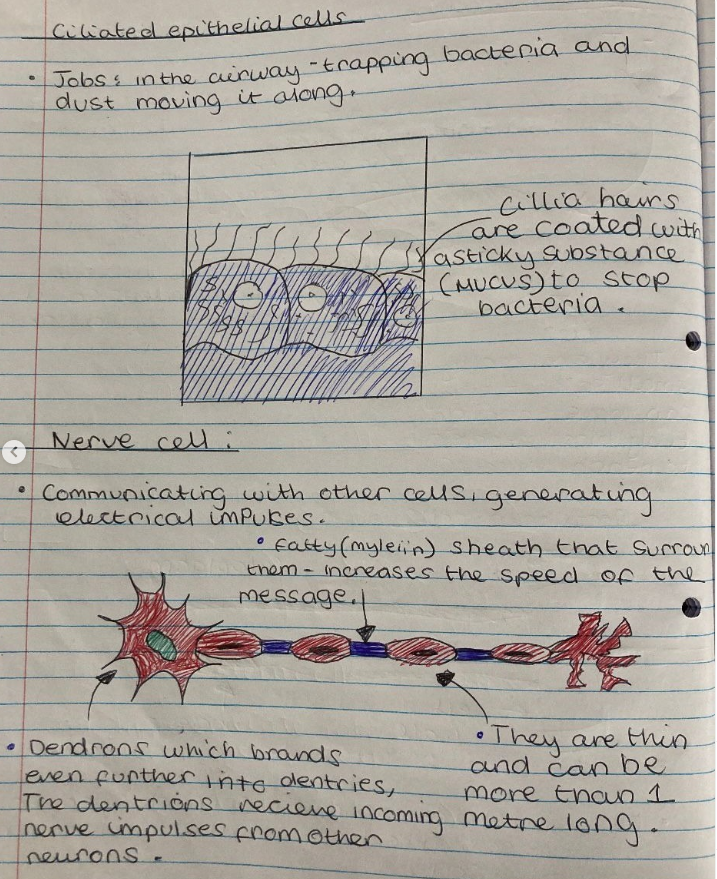 Ciliated epithelial cells
• Jobs: in the airway - trapping bacteria and
dust moving it along.
Cillia hairs
are coated with
a sticky substance
(MUCUS) to stop
bacteria.
Nerve cell:
• Communicating with other cells, generating
electrical impulses.
• Fatty (myleiin) sheath that surroun
them - increases the speed of the
message.
• Dendrons which brands
even further into dentries,
The dentrions recieve incoming
nerve impulses from other
neurons.
• They are thin
and can be
more than 1
metre long.